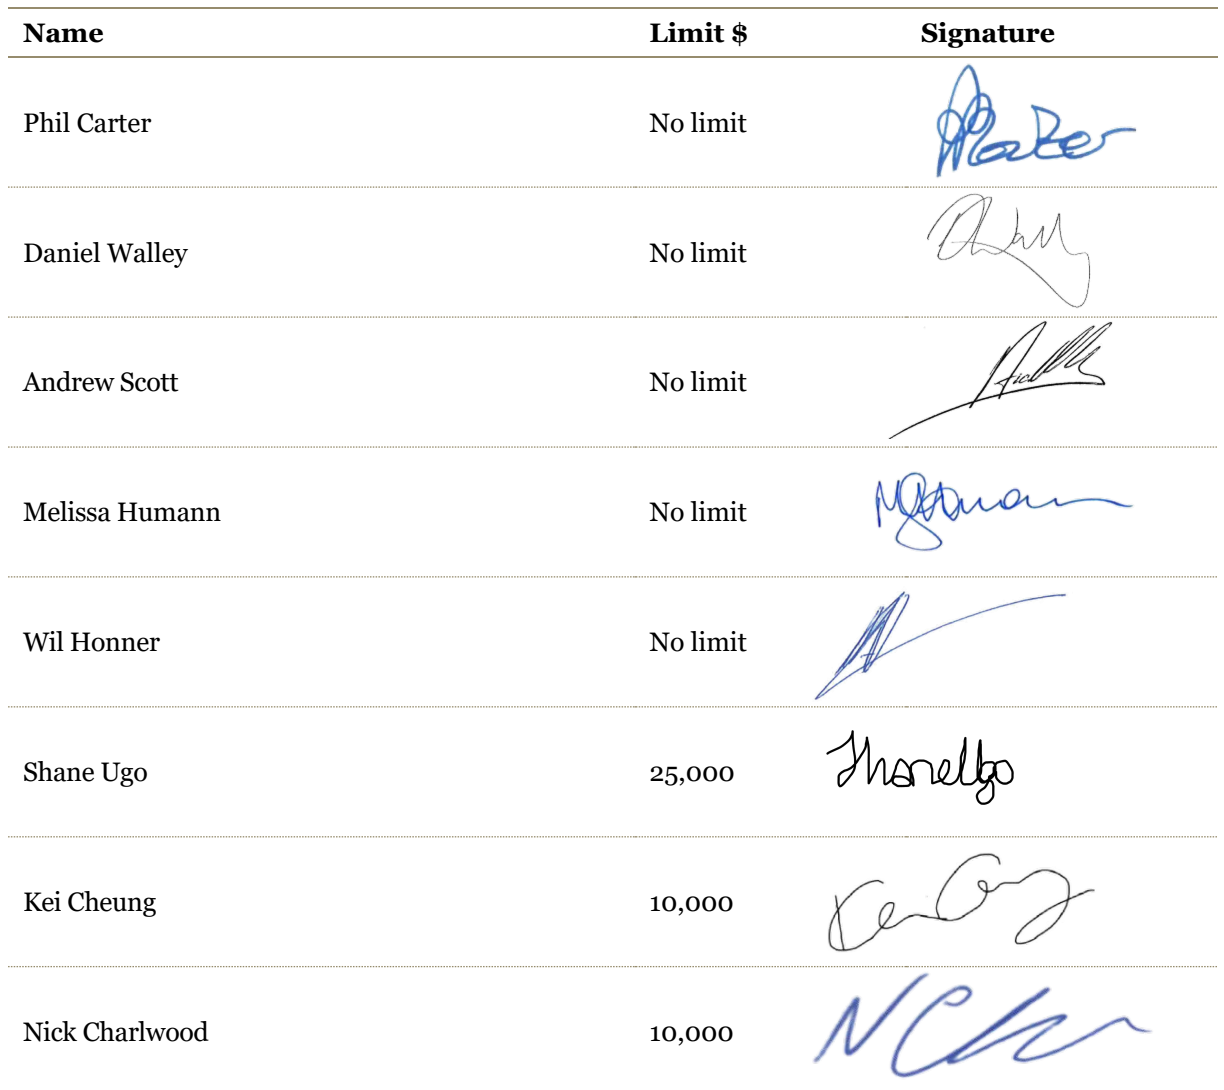 Name Limit $ Signature
Phil Carter No limit
Daniel Walley No limit
Andrew Scott No limit
Melissa Humann No limit
Wil Honner No limit
Shane Ugo 25,000
Kei Cheung 10,000
Nick Charlwood 10,000